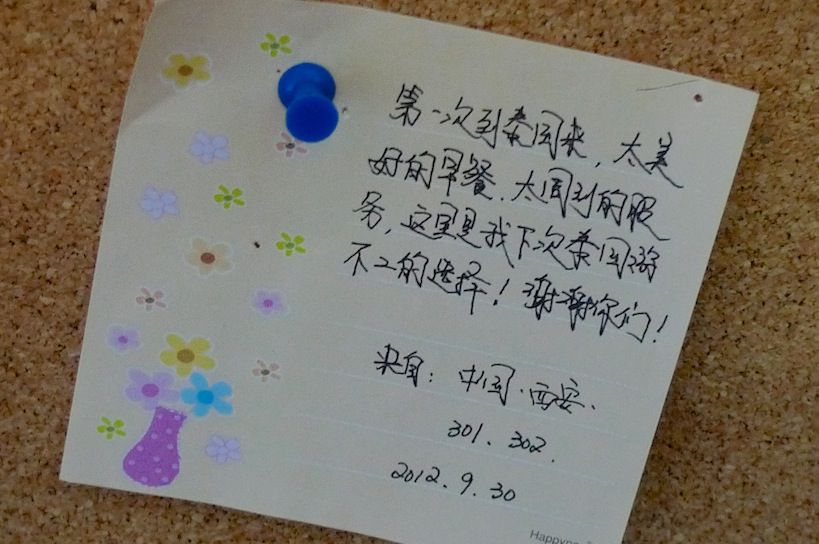 第一次到泰国来，太美
好的早餐.太周到的服
务，这里是我下次泰国游
不二的选择！谢谢你们！
来自：中国.西安.
301.302.
2012.9.30